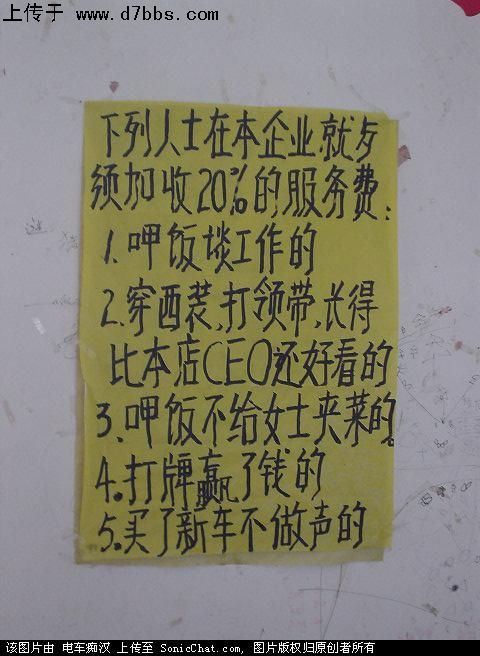 上传于 www.d7bbs.com
下列人士在本企业就歺
须加收20%的服务费:
1.呷饭谈工作的
2.穿西装,打领带,长得
比本店CEO还好看的
3、呷饭不给女士夹菜的。
4.打牌赢了钱的
5.买了新车不做声的
该图片由 电车痴汉 上传至 SonicChat.com, 图片版权归原创者所有